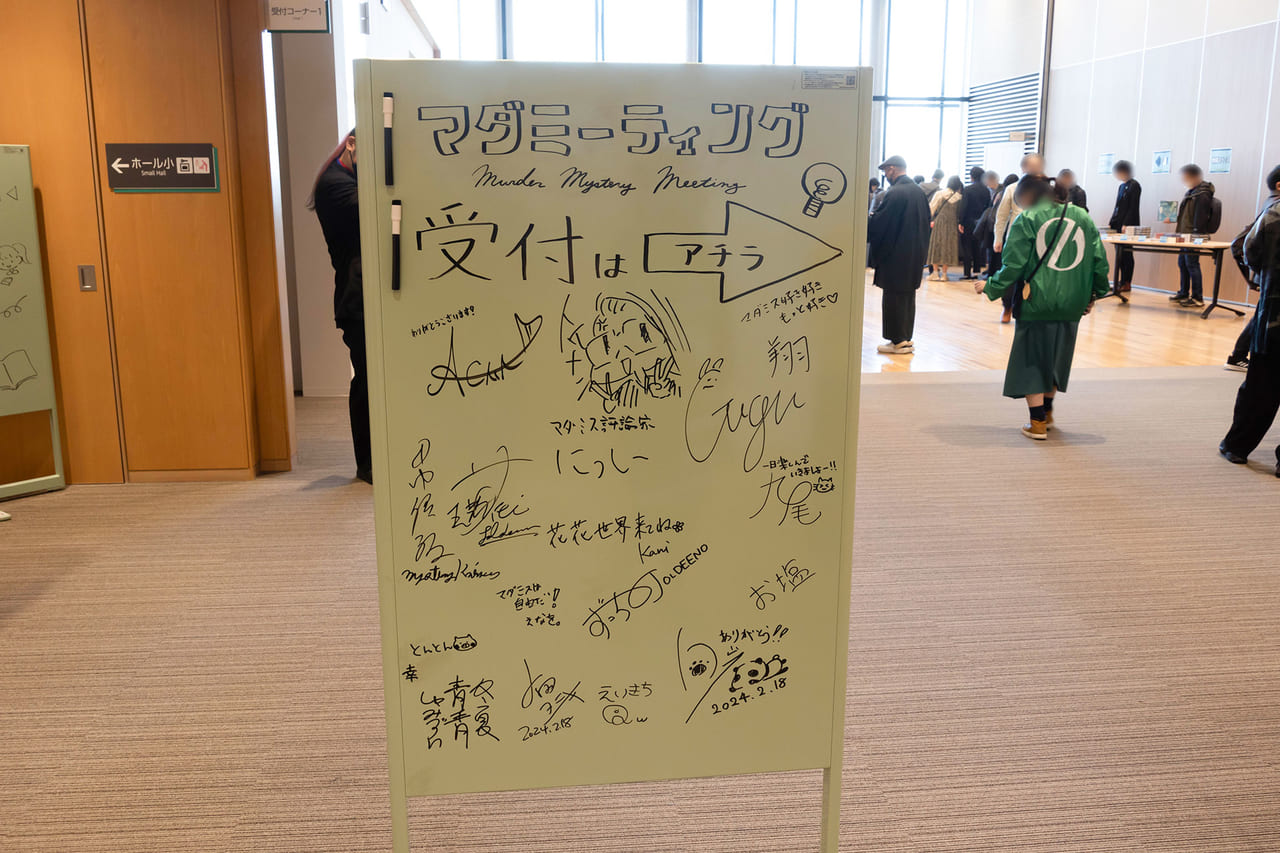 受付コーナー1
←ホール小
Small Hall
マダミーティング
Murder Mystery Meeting
受付は
アチラ
ありがとうございます!
マダミス好き好き
もっと好き♡
翔
マダミス評論家
にっしー
一日楽しんで
いきましょー!!
九尾
花花世界来てね
Kani
OLDEENO
ずっちの
マダミスは
自由だ!
えなき。
お塩
とんとん
幸
ありがとう!!
2024.2.18
えいきち
w
2024.2.18
青
冬夏